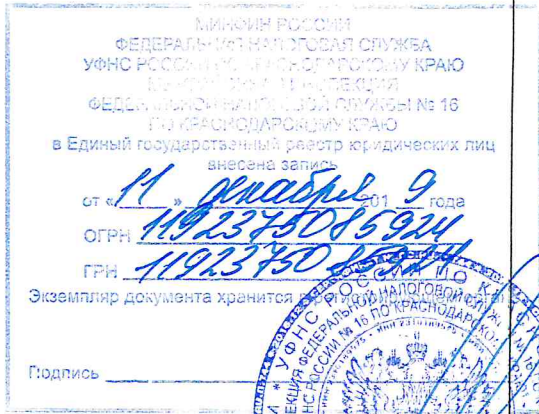 МИНФИН РОССИИ
ФЕДЕРАЛЬНАЯ НАЛОГОВАЯ СЛУЖБА
УФНС РОССИИ ПО КРАСНОДАРСКОМУ КРАЮ
ИНСПЕКЦИЯ
ФЕДЕРАЛЬНОЙ НАЛОГОВОЙ СЛУЖБЫ № 16
ПО КРАСНОДАРСКОМУ КРАЮ
в Единый государственный реестр юридических лиц
внесена запись
от «11» декабря 2019 года
ОГРН 1192375085924
ГРН 1192375085924
Экземпляр документа хранится в
Подпись
УФНС РОССИИ ПО
ФЕДЕРАЛЬНОЙ НАЛОГОВОЙ
РОССИИ № 16 ПО КРАСНОДАРСКО